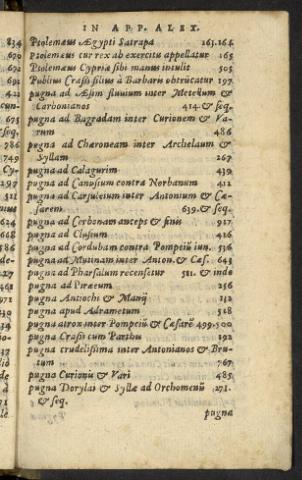 IN APP. ALEX.
Ptolemæus Ægypti Satrapa 163.164
Ptolemæus cur rex ab exercitu appellatur 165
Ptolemæus Cypriæ sibi manus intulit 505
Publius Crassi filius à Barbaris obtrũcatur 197
pugna ad Æsim fluuium inter Metellum &
Carbonianos 414. & seq.
pugna ad Bagradam inter Curionem & Va-
rum 486
pugna ad Chæroneam inter Archelaum &
Syllam 267
pugna ad Calagurim 439
pugna ad Canusium contra Norbanum 412
pugna ad Carsuleium inter Antonium & Cæ-
sarem 639. & seq.
pugna ad Carbonam anceps & finis 917
pugna ad Clusium 426
pugna ad Cordubam contra Pompeiũ iun. 536
pugna ad Mutinam inter Anton. & Cæs. 643
pugna ad Pharsalum recensetur 511. & inde
pugna ad Piræeum 256
pugna Antiochi & Manij 112
pugna apud Adrametum 528
pugna atrox inter Pompeiũ & Cæsarẽ 499.500
pugna Crassi cum Parthis 192
pugna crudelissima inter Antonianos & Bru-
tum 767
pugna Curionis & Vari 485
pugna Dorylai & Syllæ ad Orchomenũ 271.
& seq.
pugna